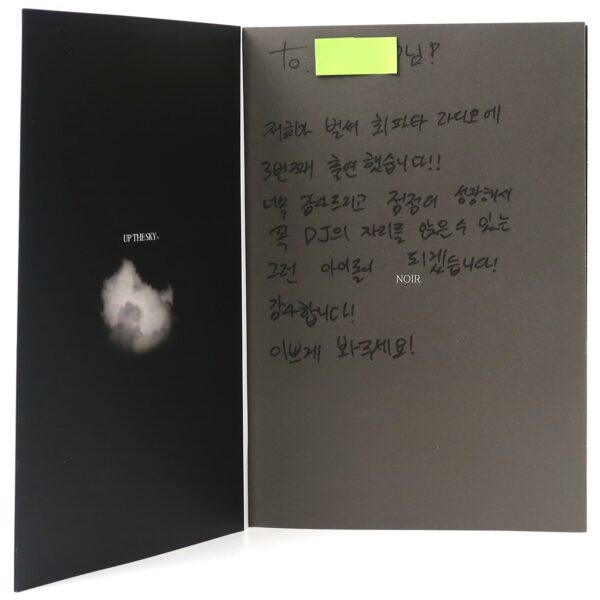 UP THE SKY
to. 님!
저희가 벌써 최파타 라디오에
3번째 출연했습니다!!
너무 감사드리고 점점더 성장해서
꼭 DJ의 자리를 앉을수 있는
그런 아이돌이 되겠습니다!
NOIR
감사합니다!
이쁘게 봐주세요!